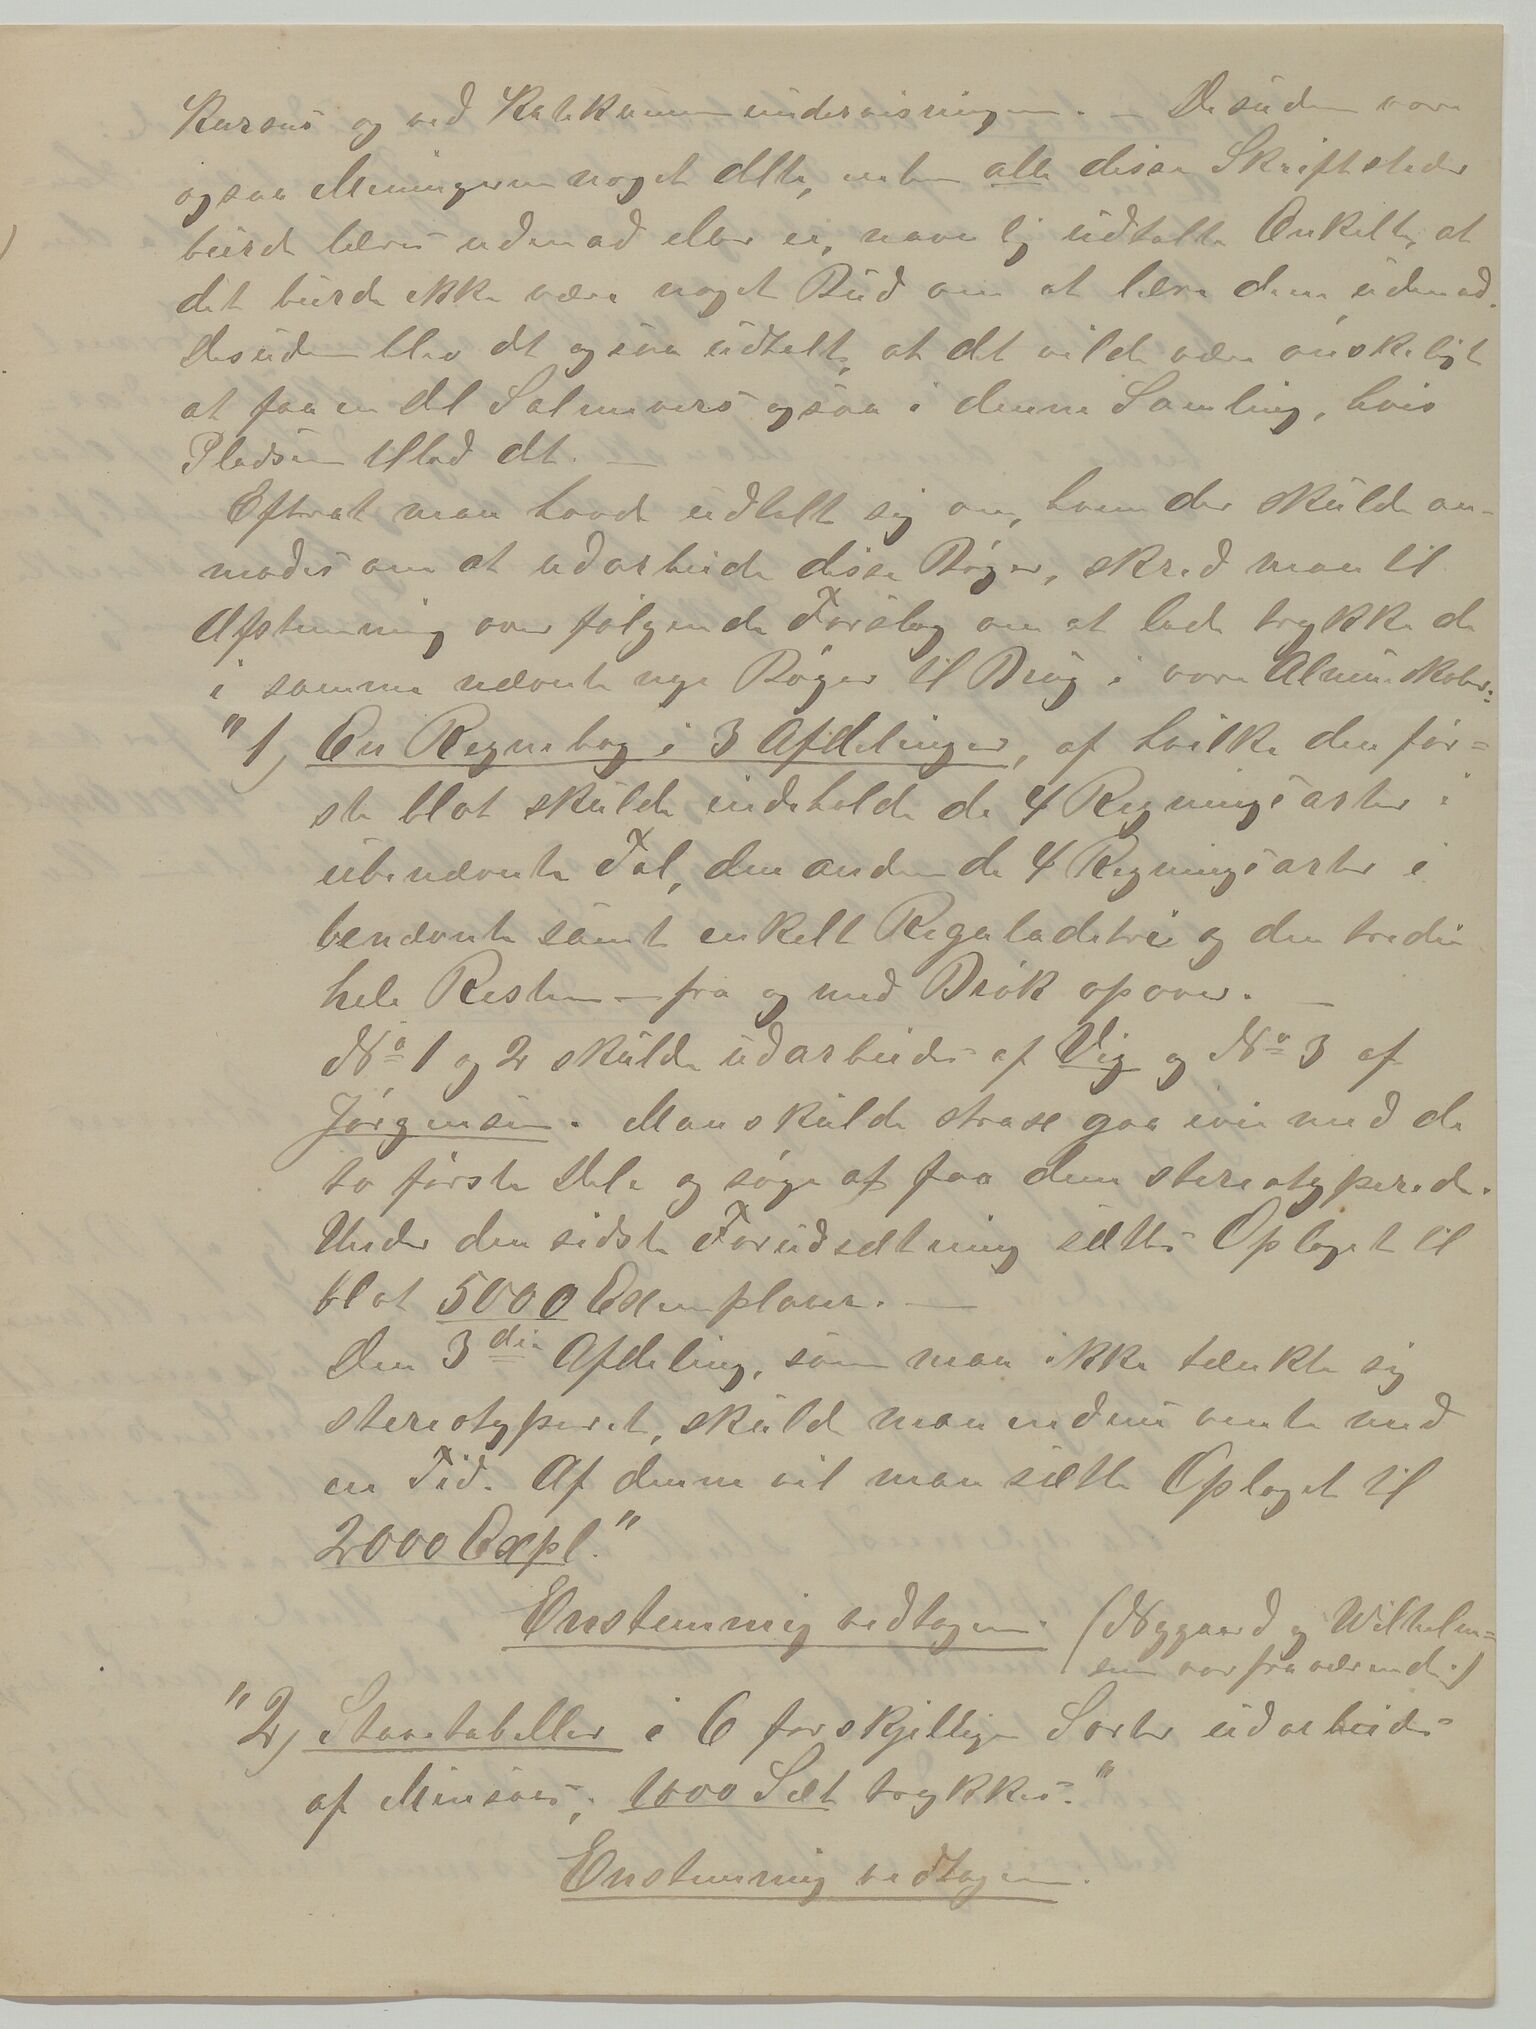 Kursus og ved Katekumenundervisningen. – Desuden vare
ogsaa Meningerne noget delte, enten alle disse Skriftsteder
burde læres udenad eller ei, nemlig udtalte Enkelte, at
det burde ikke være noget Bud om at lære dem udenad.
Desuden blev det ogsaa udtalt, at det vilde være ønskeligt
at faa en Del Salmevers ogsaa i denne Samling, hvis
Pladsen tillod det. –
Efterat man havde udtalt sig om, hvem der skulde an-
modes om at udarbeide disse Bøger, skred man til
Afstemning over følgende Forslag om at lade trykke de
i samme nævnte nye Bøger til Brug i vore Almueskoler:
"1, En Regnebog i 3 Afdelinger, af hvilke den før=
ste blot skulde indeholde de 4 Regningsarter i
ubenævnte Tal, den anden de 4 Regningsarter i
benævnte samt enkelt Reguladetri og den tredie
hele Resten – fra og med Brøk opover. –
No 1 og 2 skulde udarbeides af Vig og No 3 af
Jørgensen. Man skulde strax gaa ivei med de
to første Dele og søge at faa dem stereotyperede.
Under den sidste Forudsætning sættes Oplaget til
blot 5000 Exemplarer. –
Den 3die Afdeling, som man ikke tænkte sig
stereotyperet, skulde man endnu vente med
en Tid. Af denne vil man sætte Oplaget til
2000 Expl."
Enstemmig vedtagen. (Nygaard og Wilhelm=
sen var fraværende.)
"2, Stavetabeller i 6 forskjellige Sorter udarbeides
af Minsaas; 1000 Sæt trykkes."
Enstemmig vedtagen.